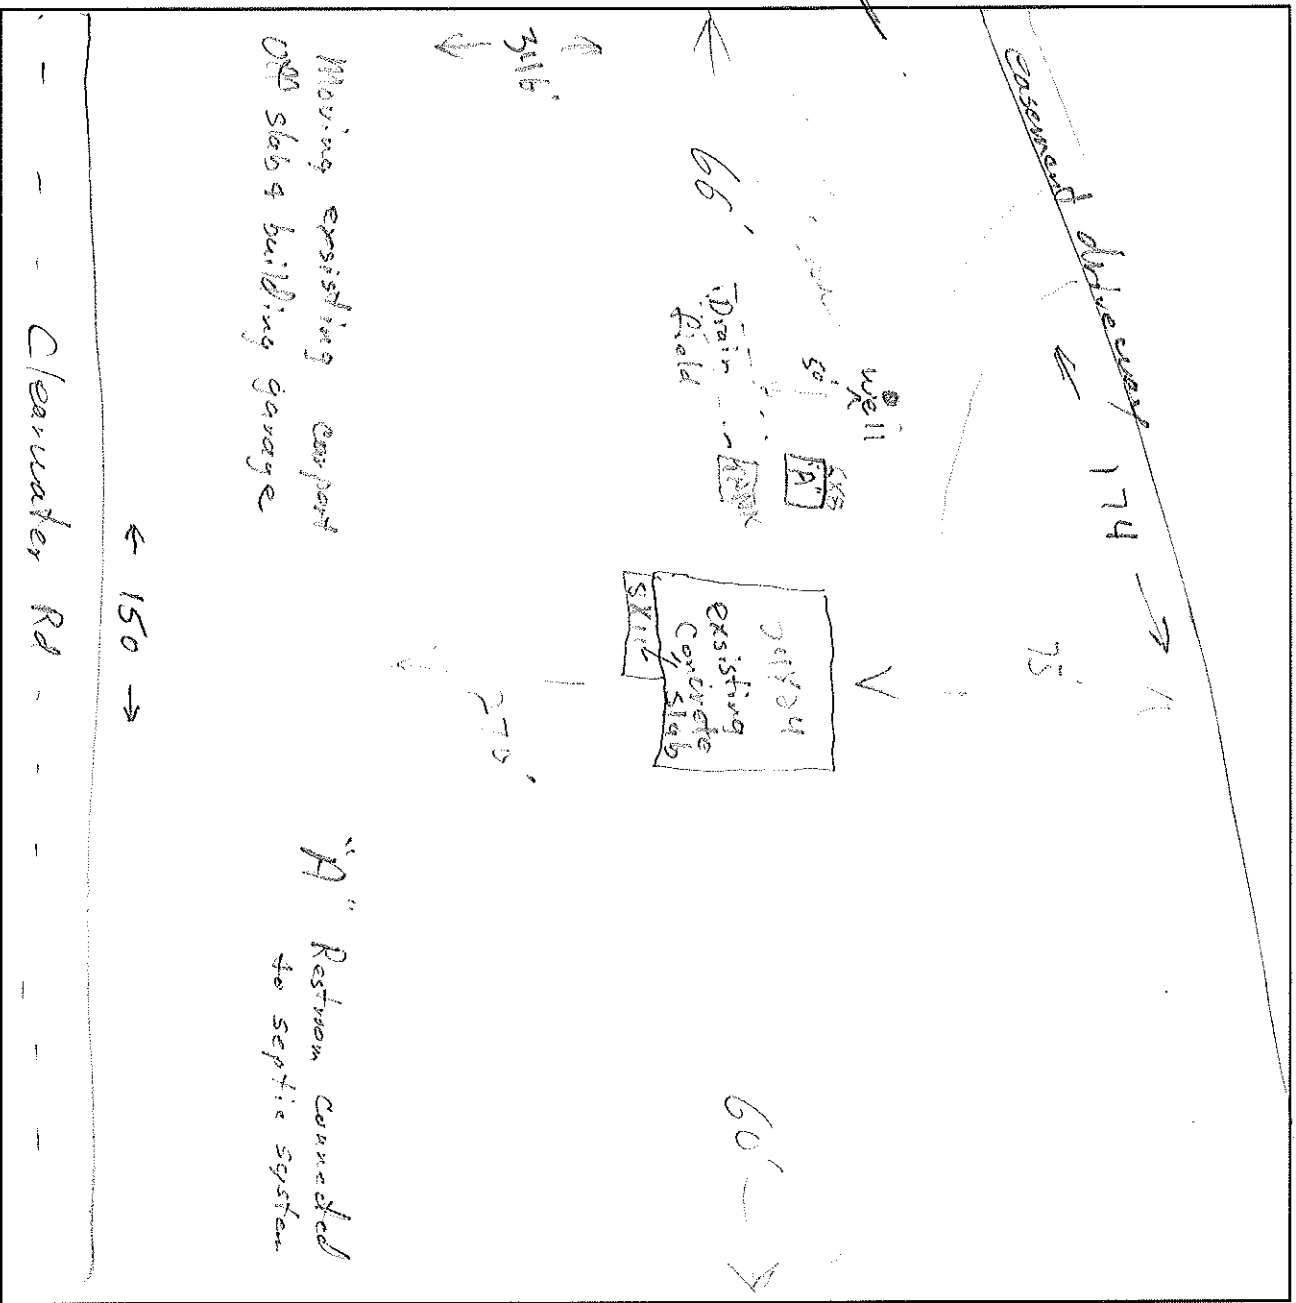 easement driveway
← 174 →
75'
well
50'
"A"
Drain
field
66'
60'
existing
Concrete
slab
270'
Moving exsisting carport
off slab & building garage
"A" Restroom connected
to septic system
← 150 →
Clearwater Rd